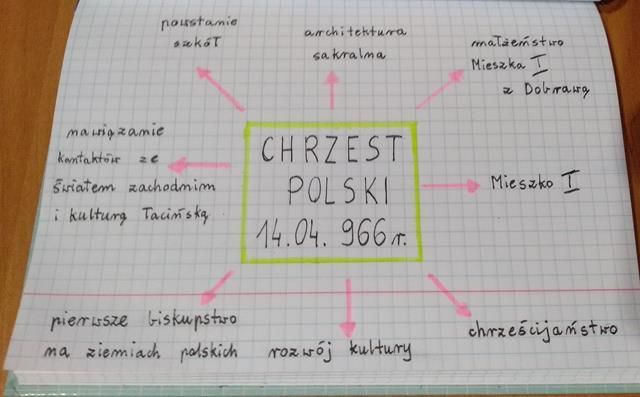 powstanie
szkół
architektura
sakralna
małżeństwo
Mieszka I
z Dobrawą
nawiązanie
kontaktów ze
światem zachodnim
i kulturą łacińską
CHRZEST
POLSKI
14.04. 966 r.
Mieszko I
pierwsze biskupstwo
na ziemiach polskich
rozwój kultury
chrześcijaństwo